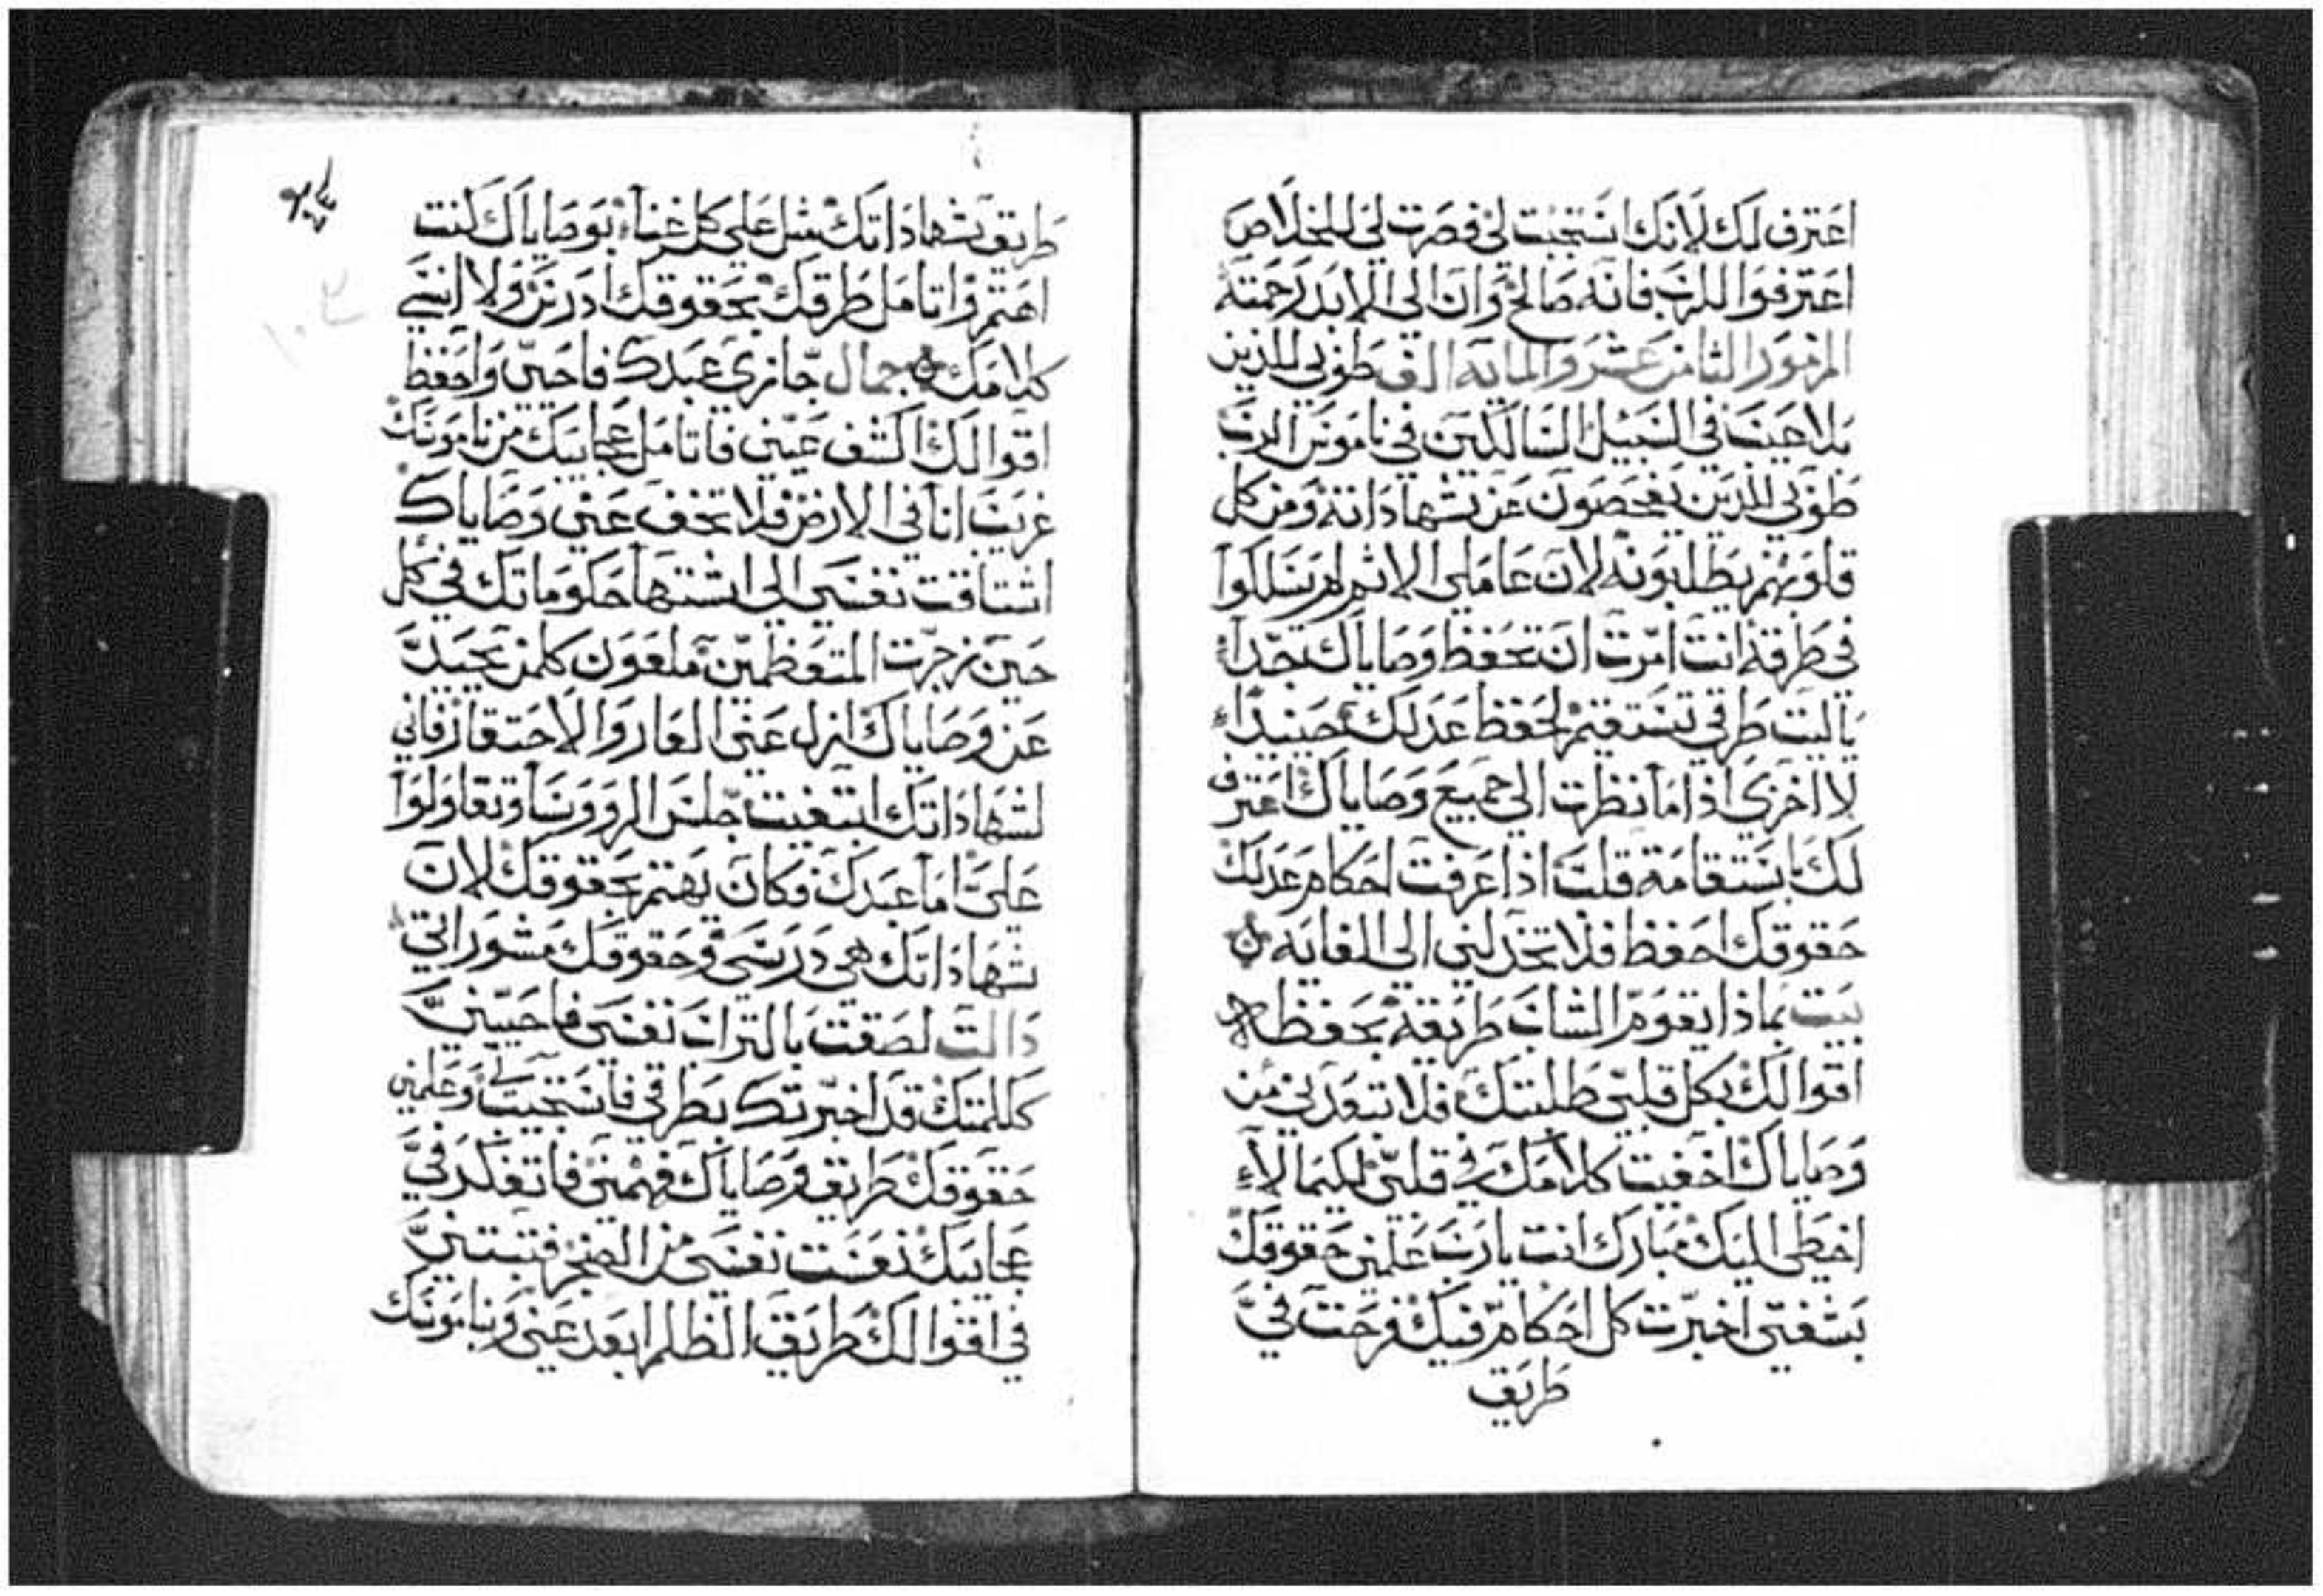 اعترف لك لانك استجبت لي فصرت لي للخلاص
اعترفوا للرب فانه صالح وان الى الابد رحمته
المزمور الثامن عشر والمايه الف طوبي للذين
بلا عيب في السبيل السالكين في ناموس الرب
طوبي للذين يفحصون عن شهاداته ومن كل
قلوبهم يطلبونه لان عاملي الاثم لم يسلكوا
في طرقه انت امرت ان تحفظ وصاياك جداً
ياليت طرقي تستقيم لحفظ عدلك حينيذاً
لا اخزي اذا ما نظرت الي جميع وصاياك اعترف
لك باستقامة قلب اذا عرفت احكام عدلك
حقوقك احفظ فلا تخذلني الي الغايه
بيت بماذا يقوم الشاب طريقه بحفظه
اقوالك بكل قلبي طلبتك فلا تبعدني من
وصاياك اخفيت كلامك في قلبي لكيما لا
اخطي اليك مبارك انت يارب علمني حقوقك
بشفتي اخبرت كل احكام فيك فرحت في
طريق
طريق شهاداتك مثل علي كل غناء بوصاياك كنت
اهتم واتامل طرقك بحقوقك ادرس ولا انسي
كلامك جمال جازي عبدك فاحيي واحفظ
اقوالك اكشف عيني فاتامل عجايبك من ناموسك
غريب انا في الارض فلا تخف عني وصاياك
اشتاقت نفسي الي اشتها حكوماتك في كل
حين زجرت المتعظمين ملعون كلمن يحيد
عن وصاياك انزل عني العار والاحتقار فاني
لشهاداتك ابتغيت جلس الروسا وتقاولوا
علي اما عبدك فكان يهتم بحقوقك لان
شهاداتك هي درسي وحقوقك مشوراتي
دالت لصقت بالتراب نفسي فاحييني
ككلمتك قد اخبرتك بطرقي فاستجبت لي وعلمني
حقوقك طريق وصاياك فهمني فاتفكر في
عجايبك نعست نفسي من الضجر فثبتني
في اقوالك طريق الظلم ابعد عني وبناموسك